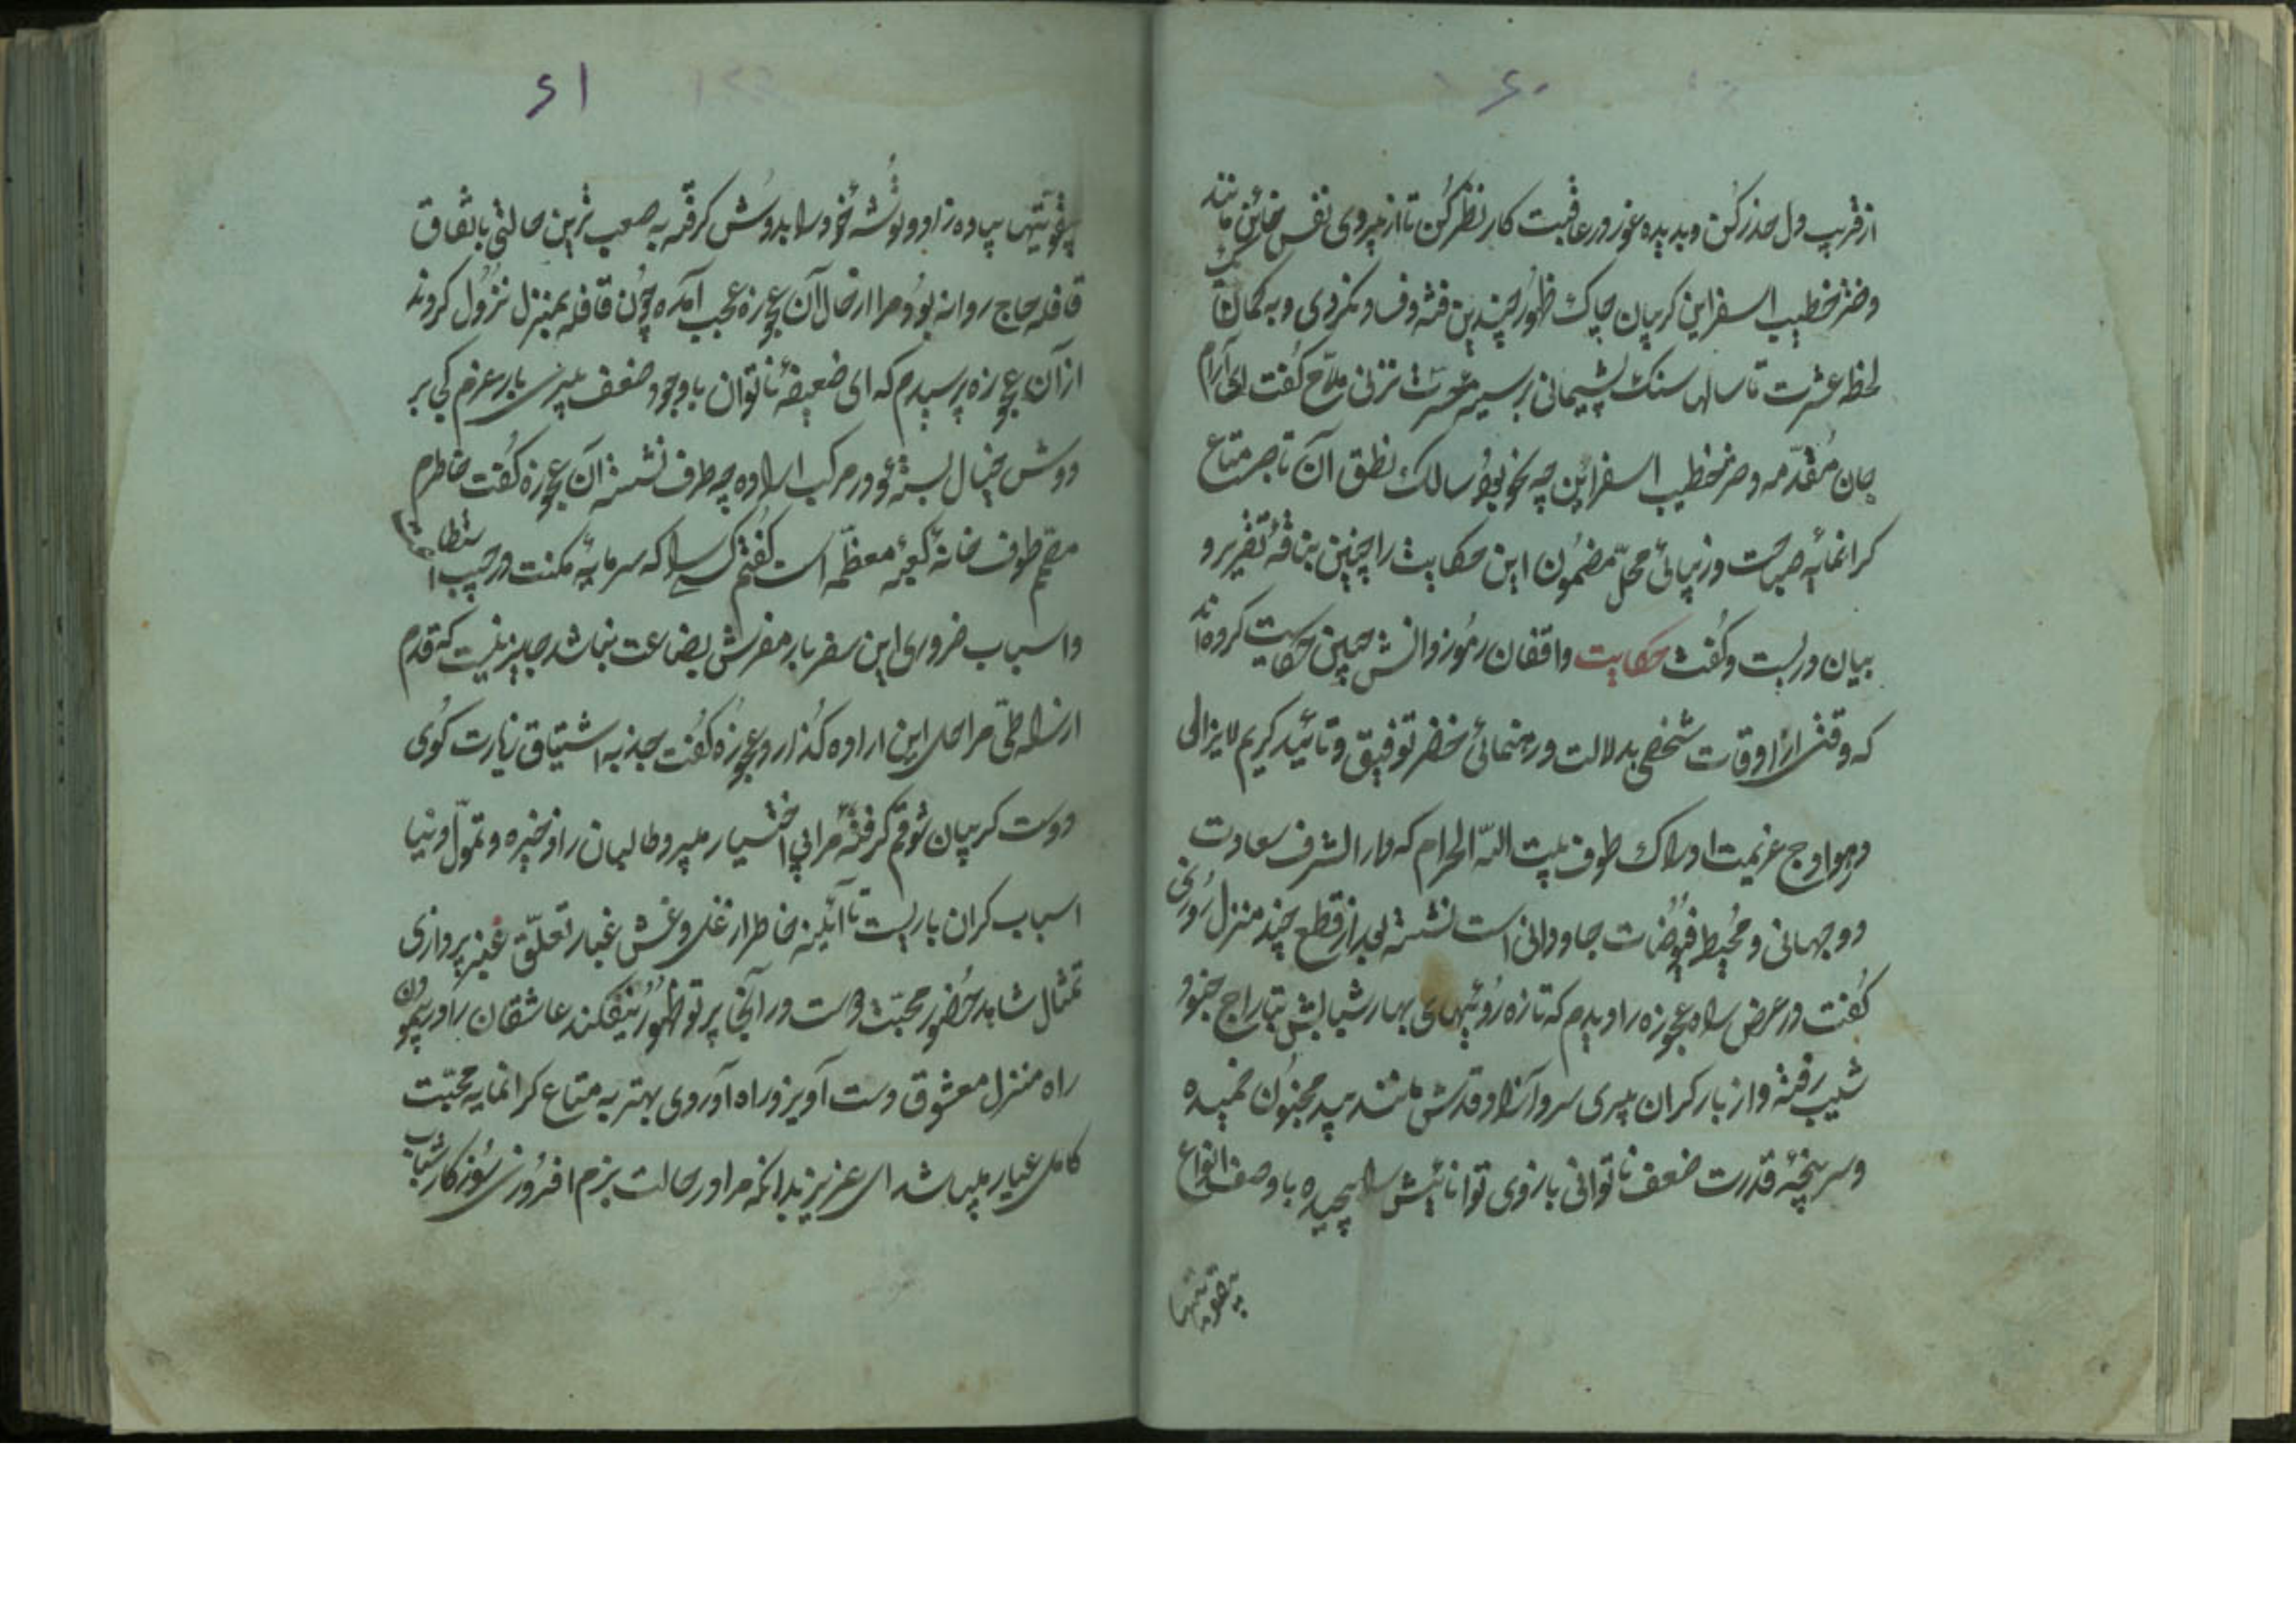 ۶۰
از فریب دل حذر کن و بدیده غور در عاقبت کار نظر کن تا از پیروی نفس خائن مانند
دختر خطیب اسفراین کریبان چاک ظهور چندین فتنه و فساد نکردی و به کمان یک
لحظه عشرت تا سالها سنک پشیمانی بر سینه حسرت نزنی ملاح گفت ای آرام
جان مقدمه دختر خطیب اسفراین چه نحو بود سالک نطق آن تاجر متاع
کرانمایه صباحت و زیبائی محمل مضمون این حکایت را چنین بناقه تقریر و
بیان در بست و گفت حکایت واقفان رموز دانش چنین حکایت کرده‌اند
که وقتی از اوقات شخصی بدلالت و رهنمائی خضر توفیق و تائید کریم لایزالی
در هوادج عزیمت ادراک طوف بیت الله الحرام که دار الشرف سعادت
دو جهانی و محیط فیوضات جاودانی است نشسته بعد از قطع چند منزل روزی
گفت در عرض راه عجوزه را دیدم که تازه روئیهای بهار شبابش بتاراج جنود
شیب رفته و از بار کران پیری سرو آزاد قدش مانند بید مجنون خمیده
و سرپنجه قدرت ضعف ناتوانی بازوی توانائیش را پیچیده با وصف انواع
بیقوتیها
۶۱
بیقوتیها پیاده زاد و توشه خود را بدوش کرفته به صعب ترین حالتی باتفاق
قافله حاج روانه بود مرا از حال آن عجوزه عجب آمده چون قافله بمنزل نزول کردند
از آن عجوزه پرسیدم که ای ضعیفه ناتوان با وجود ضعف پیری بار عزم کی بر
دوش خیال بسته و در مرکب اراده چه طرف نشسته آن عجوزه گفت خاطرم
مصمم طوف خانه کعبه معظمه است گفتم کسی را که سرمایه مکنت در جیب استطاعت
و اسباب ضروری این سفر بار مفرش بضاعت نباشد جایز نیست که قدم
از راه طی مراحل این اراده گذارد عجوزه گفت جذبه اشتیاق زیارت کوی
دوست کریبان شوقم کرفته مرا بی اختیار میبرد طالبان را ذخیره و تمول دنیا
اسباب کران باریست تا آئینه خاطر از غل و غش غبار تعلق غیر پردازی
تمثال شاهد حضور محبت دوست در آنجا پرتو ظهور نیفکند عاشقان را در پیمودن
راه منزل معشوق دست آویز و راه آوردی بهتر به متاع کرانمایه محبت
کامل عیار میباشد ای عزیز بدانکه مرا در حالت بزم افروزی روزکار شباب